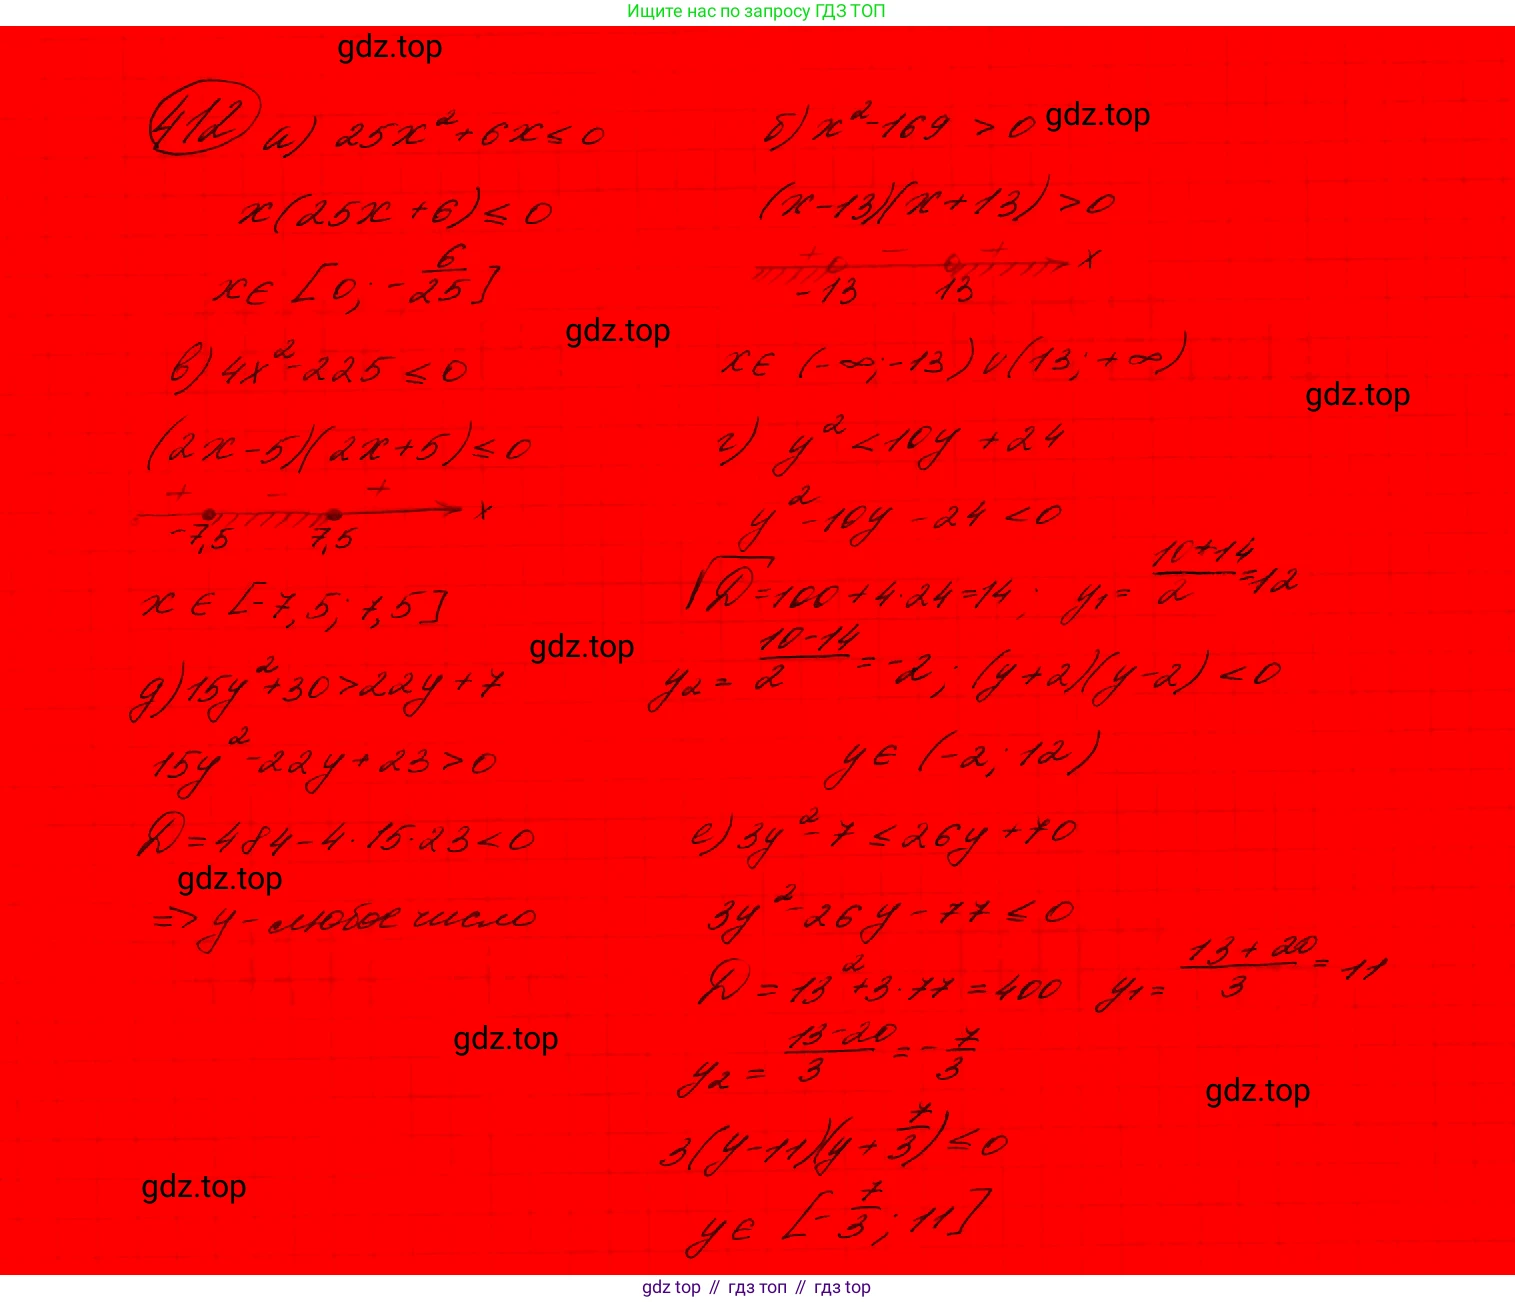 Ищите нас по запросу ГДЗ ТОП
gdz.top
412 а) 25x² + 6x ≤ 0
x(25x + 6) ≤ 0
x ∈ [0; -6/25]
б) x² - 169 > 0
gdz.top
(x-13)(x+13) > 0
+ - + x
-13 13
x ∈ (-∞; -13) ∪ (13; +∞)
gdz.top
gdz.top
в) 4x² - 225 ≤ 0
(2x-5)(2x+5) ≤ 0
+ - + x
-7,5 7,5
x ∈ [-7,5; 7,5]
г) y² < 10y + 24
y² - 10y - 24 < 0
√D = 100 + 4·24 = 14; y₁ = (10+14)/2 = 12
y₂ = (10-14)/2 = -2; (y+2)(y-2) < 0
y ∈ (-2; 12)
gdz.top
д) 15y² + 30 > 22y + 7
15y² - 22y + 23 > 0
D = 484 - 4·15·23 < 0
gdz.top
=> y - любое число
е) 3y² - 7 ≤ 26y + 70
3y² - 26y - 77 ≤ 0
D = 13² + 3·77 = 400 y₁ = (13+20)/3 = 11
y₂ = (13-20)/3 = -7/3
3(y-11)(y+7/3) ≤ 0
y ∈ [-7/3; 11]
gdz.top
gdz.top
gdz.top
gdz top // гдз топ // гдз top